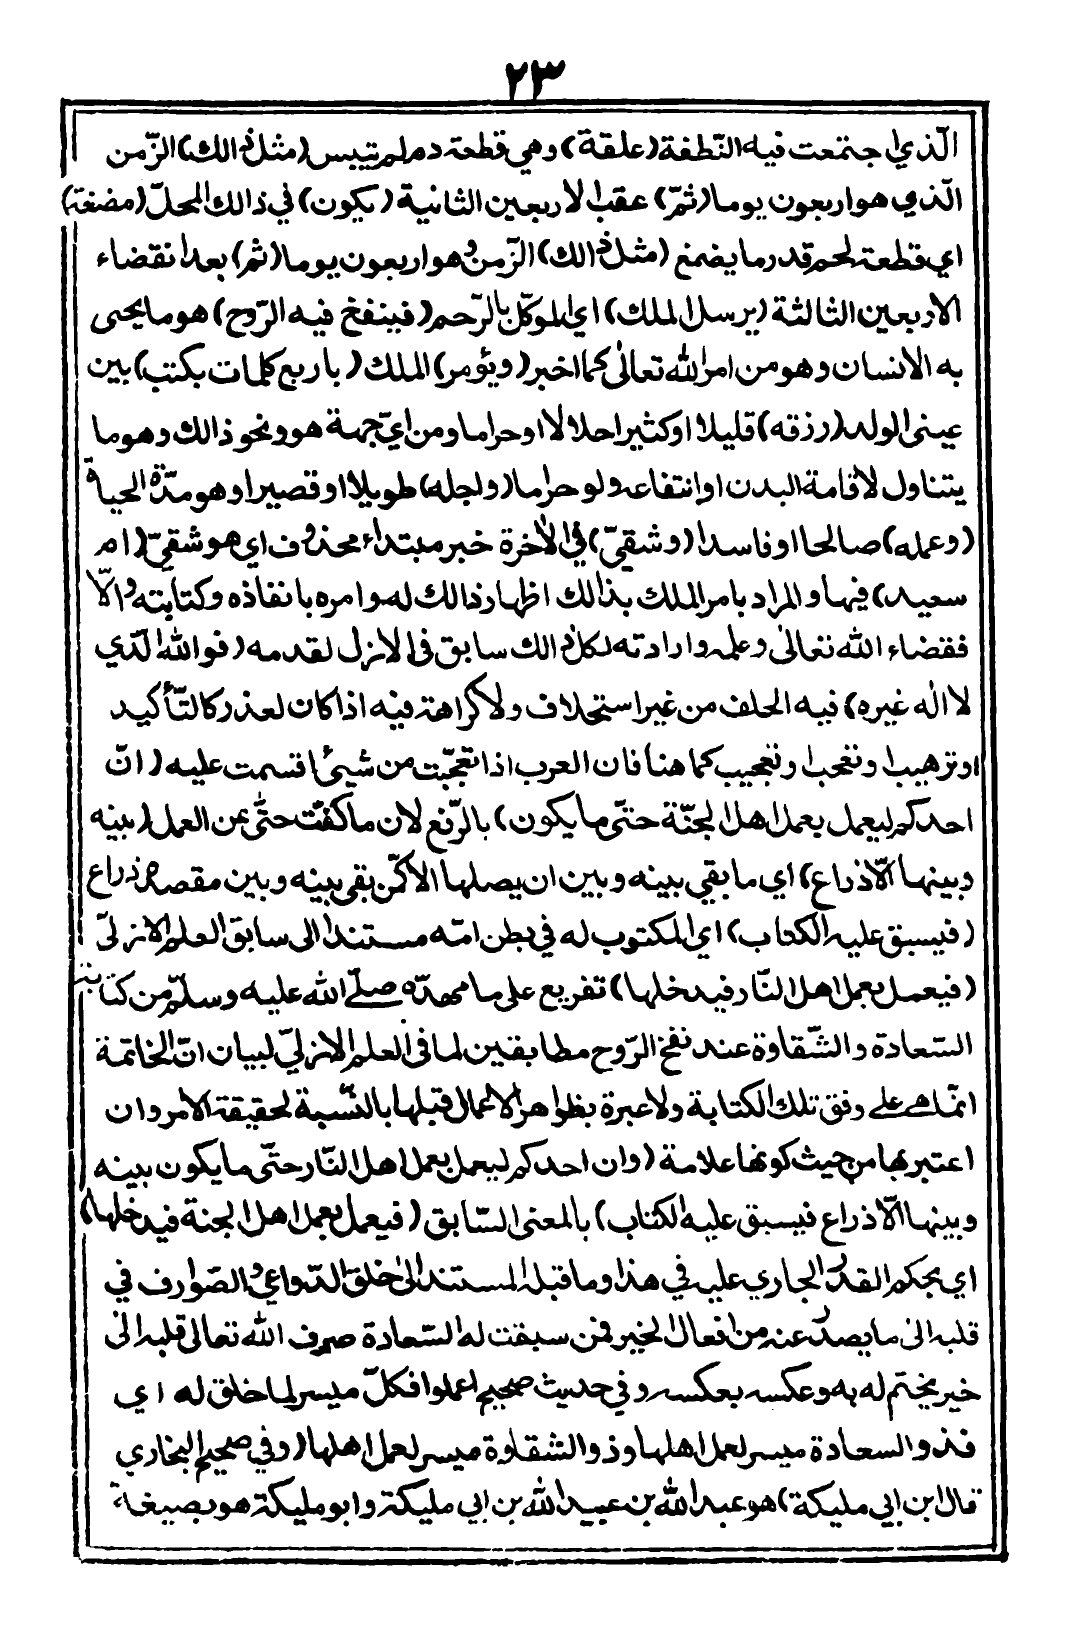 ٢٣
الّذي اجتمعت فيه النّطفة (علقة) وهي قطعة دم لم تيبس (مثل ذالك) الزّمن
الّذي هو اربعون يوما (ثمّ) عقب الاربعين الثانية (يكون) في ذالك المحلّ (مضغة)
اي قطعة لحم قدر ما يمضغ (مثل ذالك) الزّمن وهو اربعون يوما (ثم) بعد انقضاء
الاربعين الثالثة (يرسل الملك) اي الموكّل بالرّحم (فينفخ فيه الرّوح) هو ما يحيى
به الانسان وهو من امر الله تعالىٰ كما اخبر (ويؤمر) الملك (باربع كلمات بكتب) بين
عيني الولد (رزقه) قليلا او كثيرا حلالا او حراما ومن ايّ جهة هو ونحو ذالك وهو ما
يتناول لاقامة البدن او انتفاعه ولو حراما (واجله) طويلا او قصيرا وهو مدّة الحياة
(وعمله) صالحا او فاسدا (وشقيّ) في الأخرة خبر مبتداء محذوف اي هو شقيّ (ام
سعيد) فيها والمراد بامر الملك بذالك اظهار ذالك له وامره بانفاذه وكتابته والّا
فقضاء الله تعالىٰ وعلمه وارادته لكل ذالك سابق في الازل لقدمه (فوالله الّذي
لا اله غيره) فيه الحلف من غير استحلاف ولا كراهة فيه اذا كان لعذر كالتّأكيد
او ترهيب او تعجب او تعجيب كما هنا فان العرب اذا تعجّبت من شيئ اقسمت عليه (انّ
احدكم ليعمل بعمل اهل الجنّة حتّى ما يكون) بالرّفع لان ما كفّت حتّى عن العمل (بينه
وبينها الّا ذراع) اي ما بقي بينه وبين ان يصلها الا كمن بقي بينه وبين مقصده ذراع
(فيسبق عليه الكتاب) اي المكتوب له في بطن امّه مستندا الى سابق العلم الازليّ
(فيعمل بعمل اهل النّار فيدخلها) تفريع على ما مهّده صلّى الله عليه وسلّم من كتابته
السّعادة والشّقاوة عند نفخ الرّوح مطابقين لما في العلم الازليّ لبيان انّ الخاتمة
انّما هي على وفق تلك الكتابة ولا عبرة بظواهر الاعمال قبلها بالنّسبة لحقيقة الامر وان
اعتبر بها من حيث كونها علامة (وان احدكم ليعمل بعمل اهل النّار حتّى ما يكون بينه
وبينها الّا ذراع فيسبق عليه الكتاب) بالمعنى السّابق (فيعمل بعمل اهل الجنة فيدخلها)
اي بحكم القدر الجاري عليه في هذا وما قبله المستند الىٰ خلق الدّواعي والصّوارف في
قلبه الىٰ ما يصدر عنه من افعال الخير فمن سبقت له السّعادة صرف الله تعالى قلبه الىٰ
خير يختم له به وعكسه بعكسه وفي حديث صحيح اعملوا فكلّ ميسر لما خلق له اي
فذو السعادة ميسر لعمل اهلها وذو الشقاوة ميسر لعمل اهلها (وفي صحيح البخاري
قال ابن ابي مليكة) هو عبد الله بن عبيد الله بن ابي مليكة وابو مليكة هو بصيغة